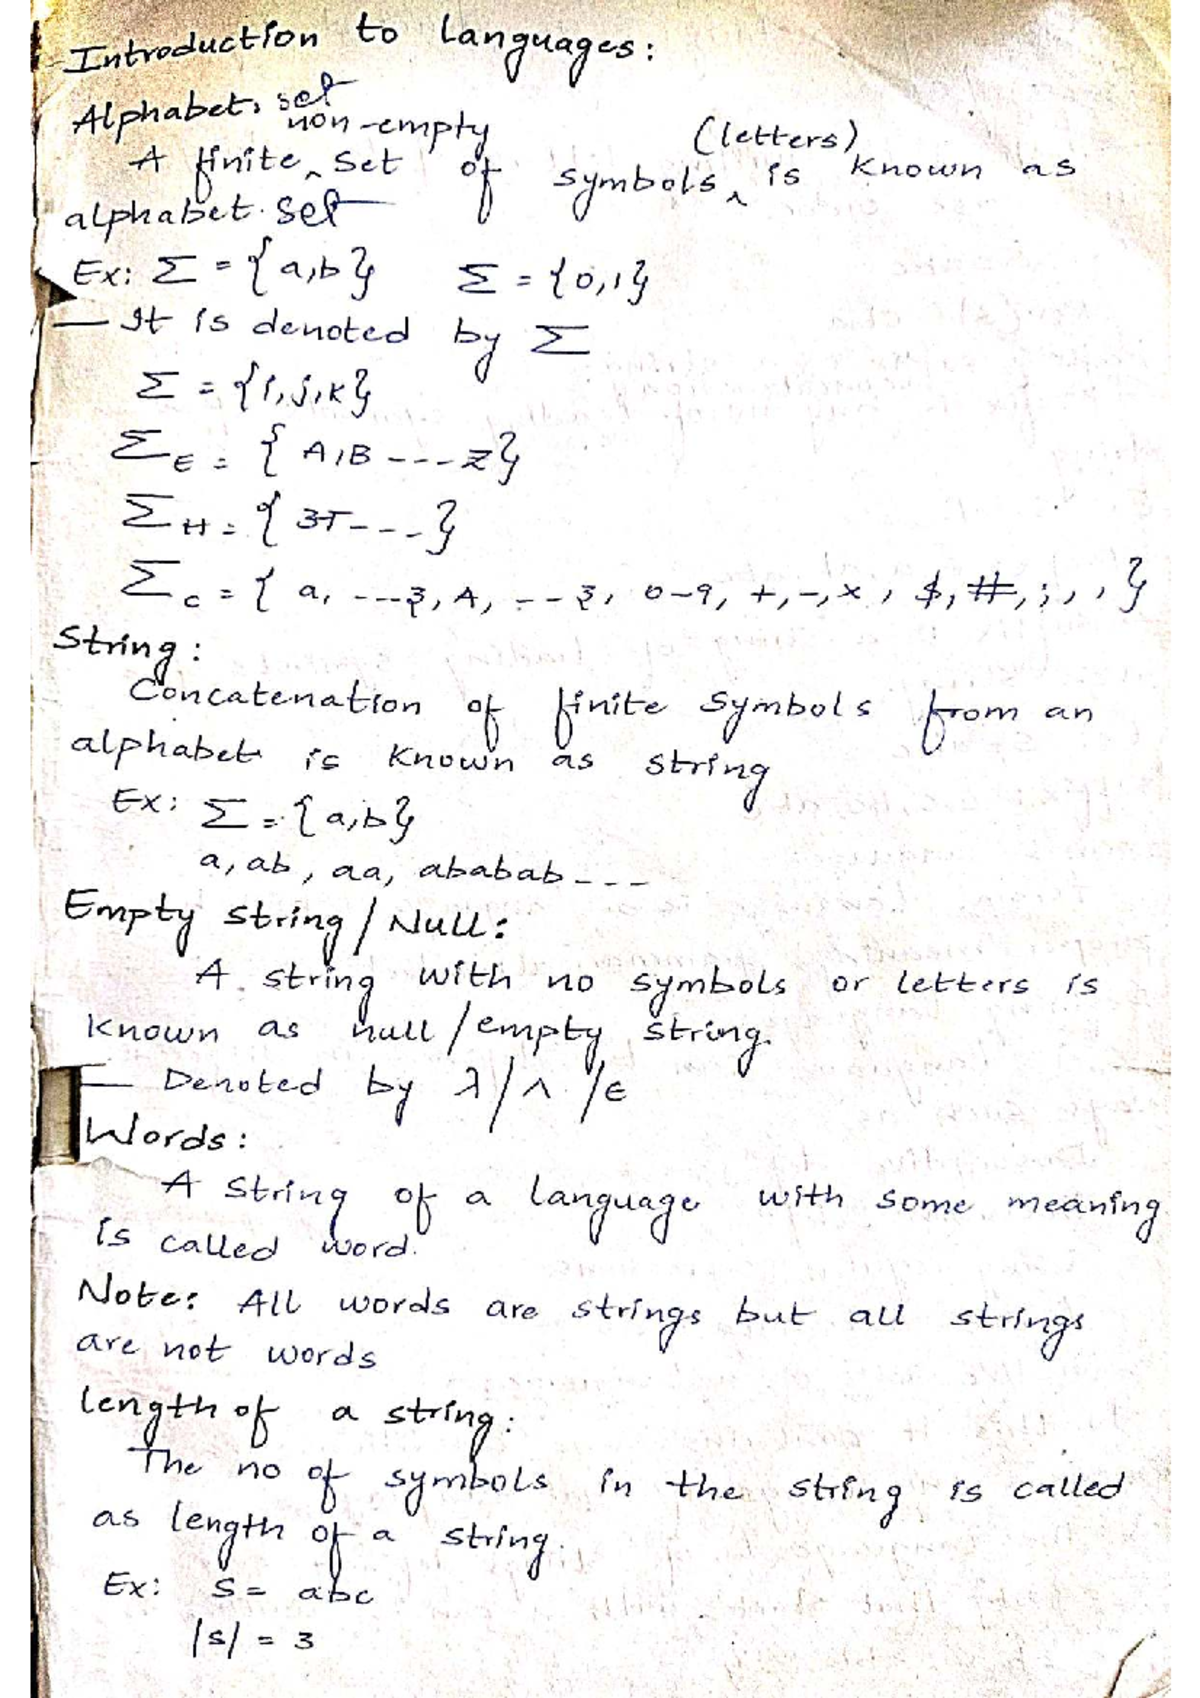 Introduction to languages:
Alphabet: set
non-empty (letters)
A finite ^ set of symbols ^ is known as
alphabet set
Ex: Σ = {a,b} Σ = {0,1}
— It is denoted by Σ
Σ = {i,j,k}
Σ_E = { A,B ---z}
Σ_H = { अ---}
Σ_C = { a, ---z, A, --z, 0-9, +,-,x, $,#,;,, }
String:
Concatenation of finite symbols from an
alphabet is known as string
Ex: Σ = {a,b}
a, ab, aa, ababab ---
Empty string / Null:
A string with no symbols or letters is
known as null / empty string.
— Denoted by λ/^/ε
Words:
A string of a language with some meaning
is called word.
Note: All words are strings but all strings
are not words
length of a string:
The no of symbols in the string is called
as length of a string.
Ex: S = abc
|s| = 3